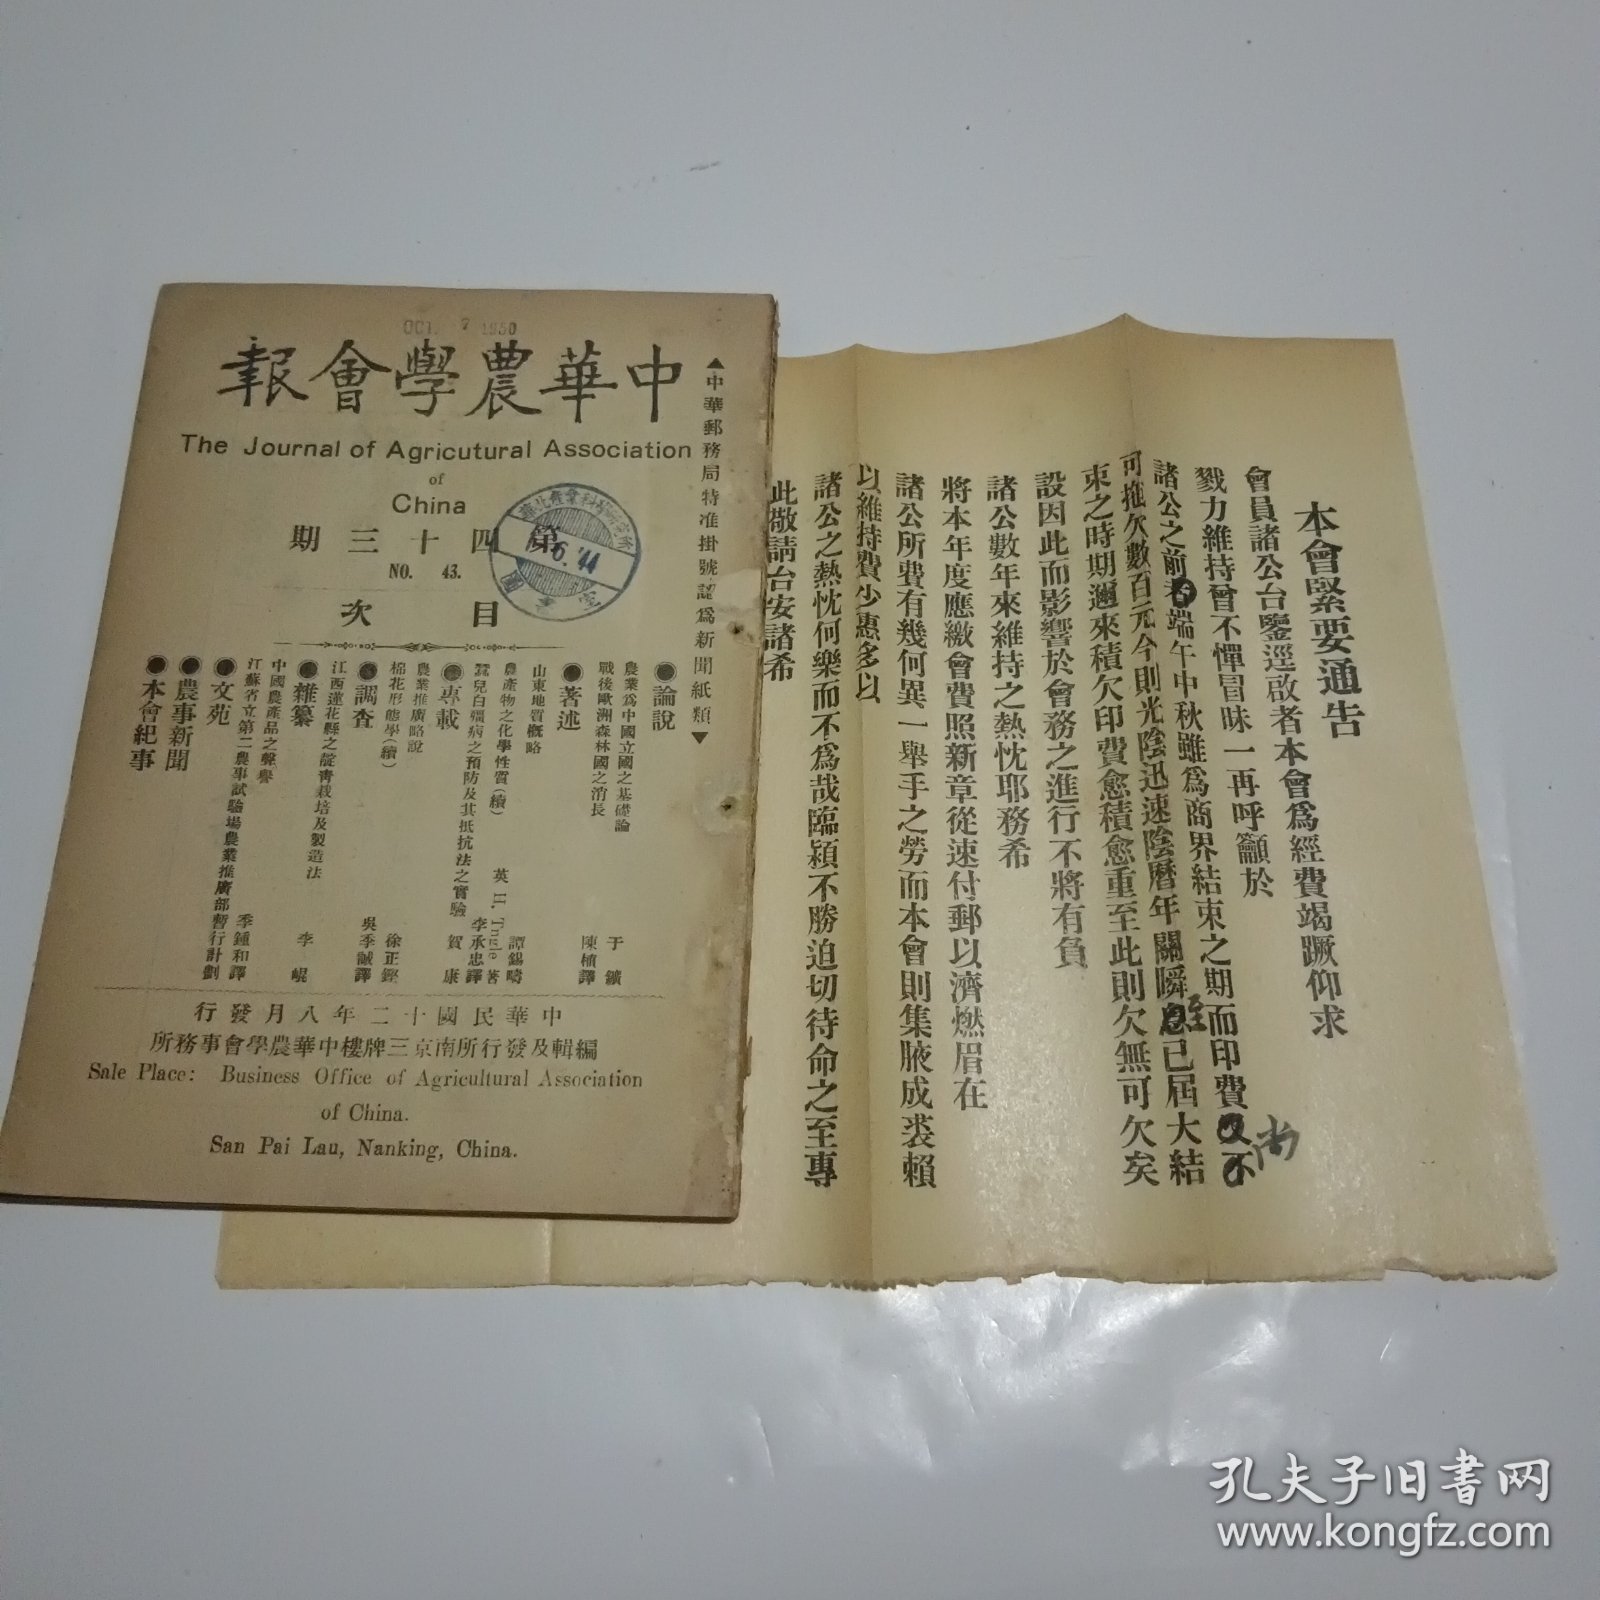 OCT. 7 1930
中華農學會報
The Journal of Agricutural Association
of
China
第四十三期
NO. 43.
目次
▲中華郵務局特准掛號認爲新聞紙類▼
●論說
農業爲中國立國之基礎論 于鑛
戰後歐洲森林國之消長 陳植譯
●著述
山東地質概略 譚錫疇
農產物之化學性質(續) 英 H. Tngle 著 李承忠譯
蠶兒白殭病之預防及其抵抗法之實驗 賀康
●專載
農業推廣略說 徐正鏗
棉花形態學(續) 吳季誠譯
●調查
江西蓮花縣之靛青栽培及製造法 李崐
●雜纂
中國農產品之聲譽 季鍾和譯
江蘇省立第二農事試驗場農業推廣部暫行計劃
●文苑
●農事新聞
●本會紀事
中華民國十二年八月發行
編輯及發行所南京三牌樓中華農學會事務所
Sale Place: Business Office of Agricultural Association
of China.
San Pai Lau, Nanking, China.
本會緊要通告
會員諸公台鑒逕啟者本會爲經費竭蹶仰求
戮力維持曾不憚冒昧一再呼籲於
諸公之前端午中秋雖爲商界結束之期而印費尚
可拖欠數百元今則光陰迅速陰曆年關瞬已屆大結
束之時期邇來積欠印費愈積愈重至此則欠無可欠矣
設因此而影響於會務之進行不將有負
諸公數年來維持之熱忱耶務希
將本年度應繳會費照新章從速付郵以濟燃眉在
諸公所費有幾何異一舉手之勞而本會則集腋成裘賴
以維持費少惠多以
諸公之熱忱何樂而不爲哉臨穎不勝迫切待命之至專
此敬請台安諸希
孔夫子旧书网
www.kongfz.com